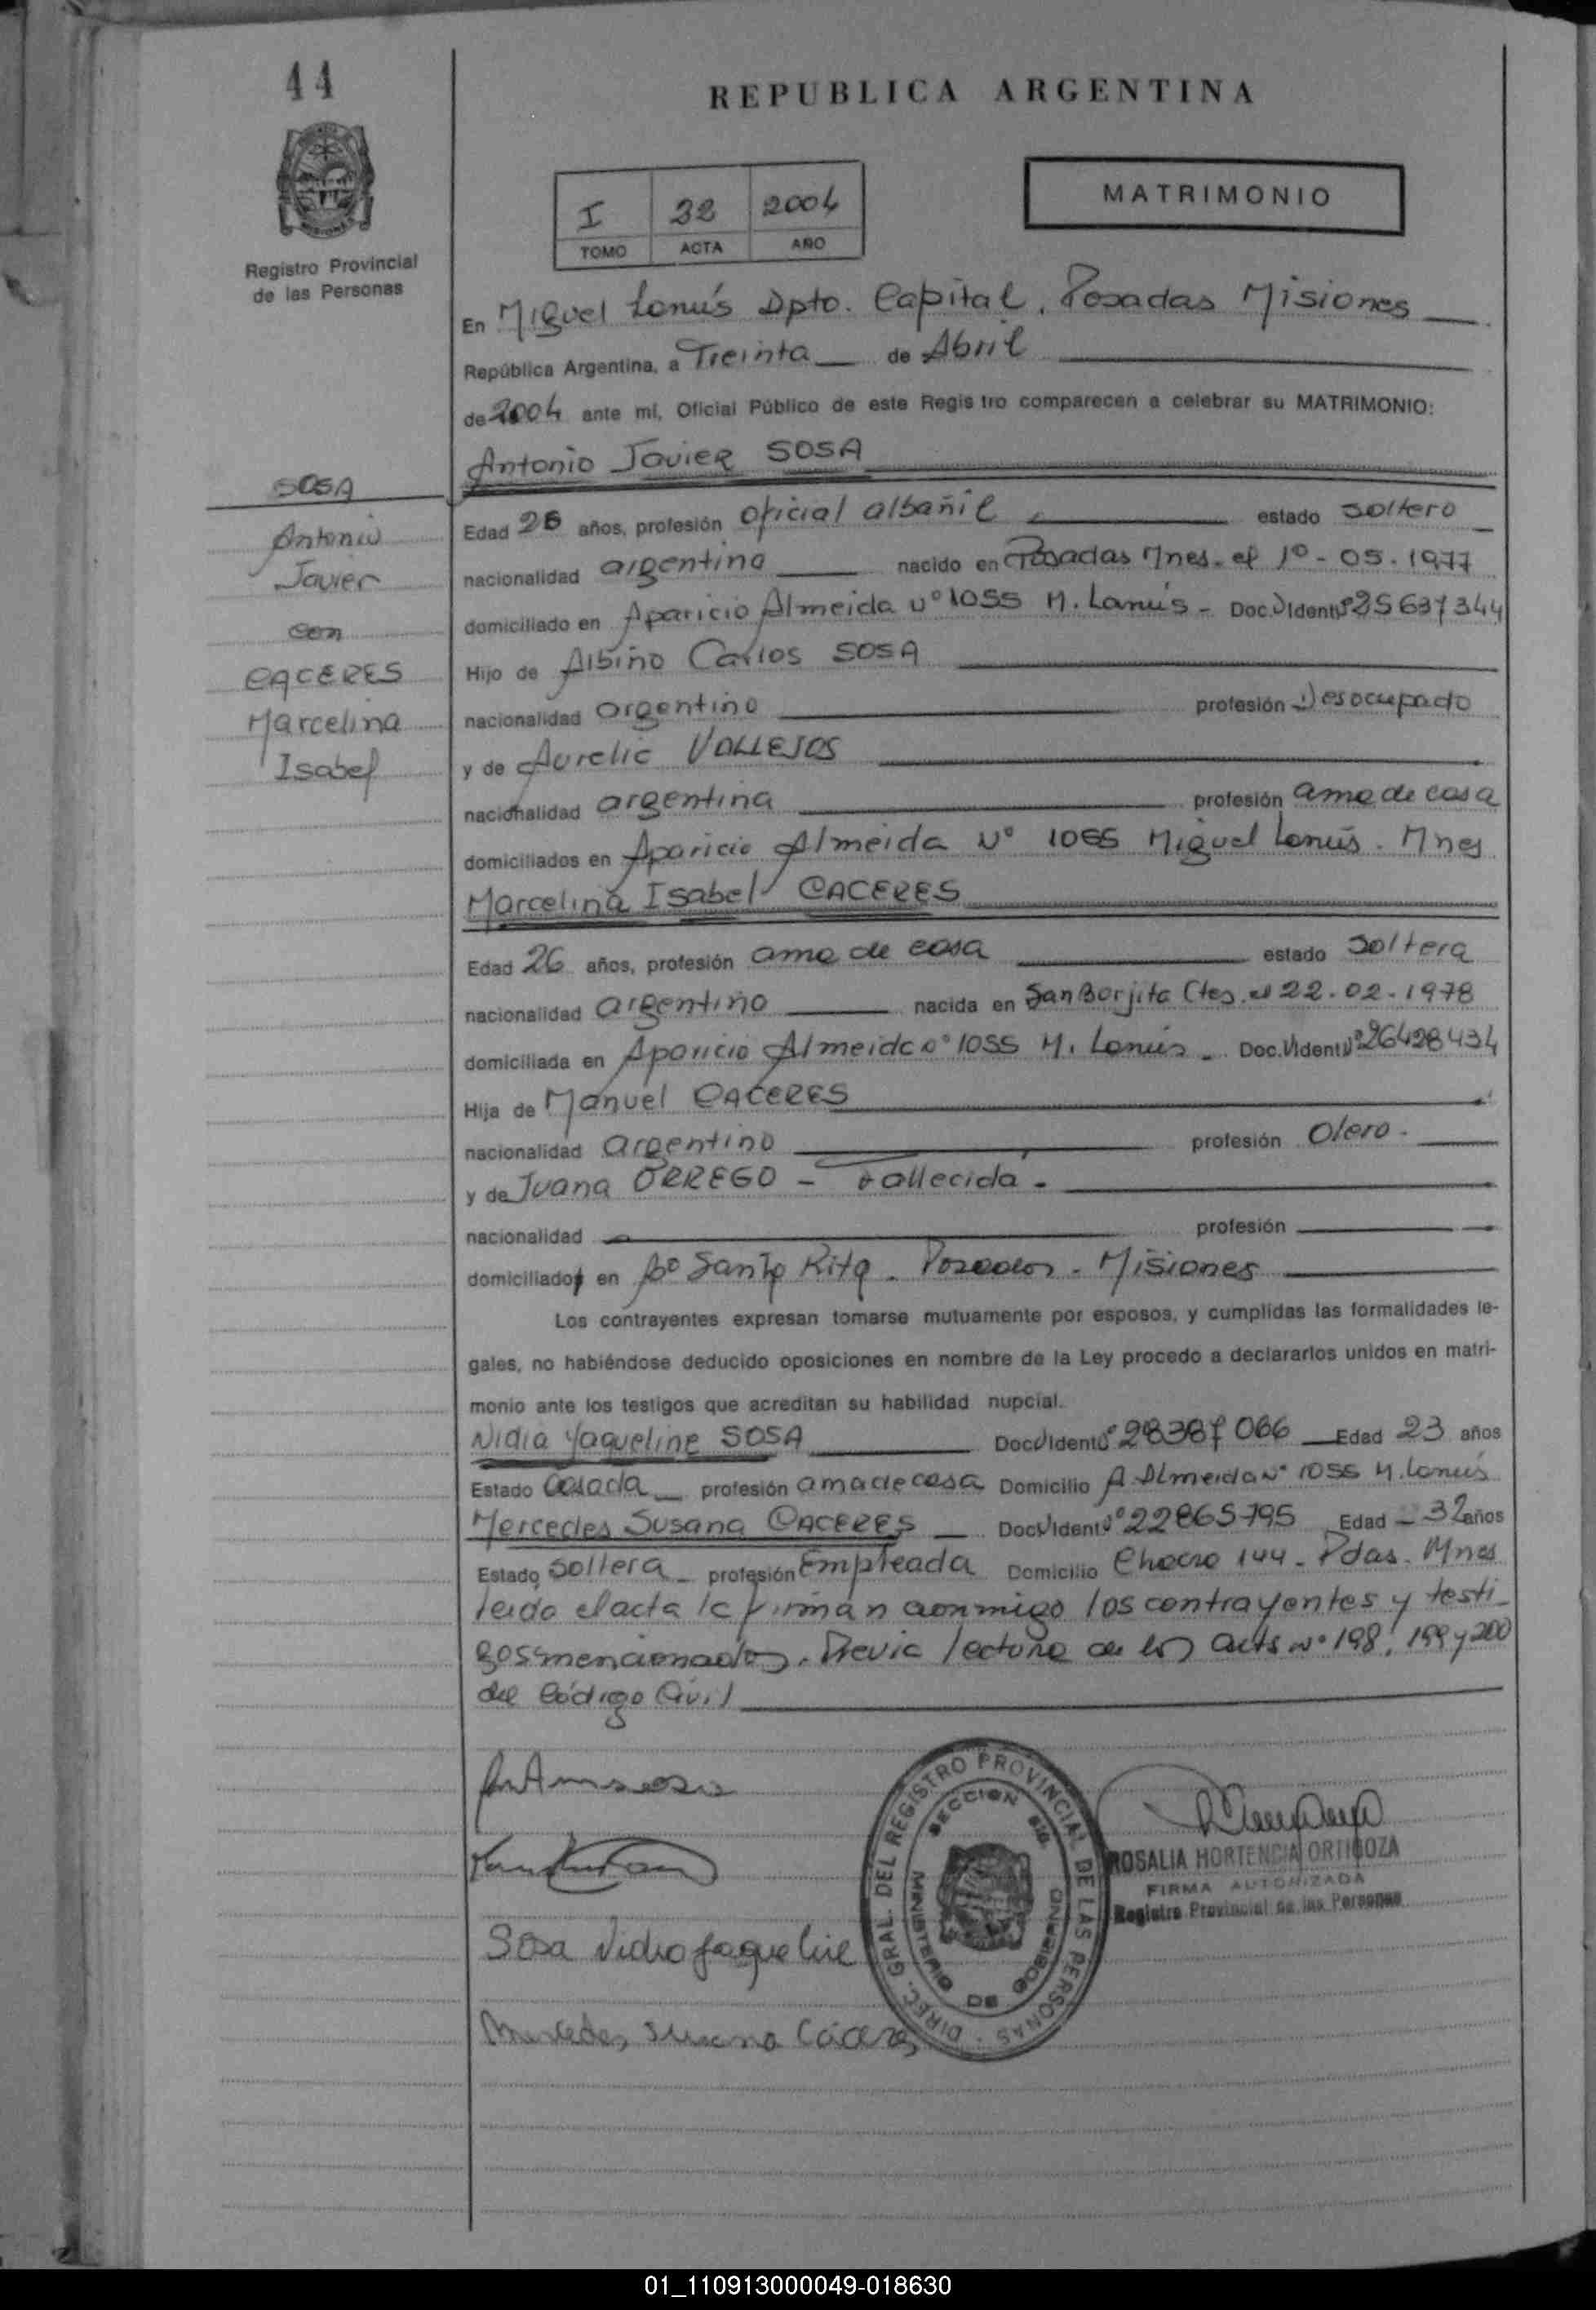 44
REPUBLICA ARGENTINA
I 32 2004
TOMO ACTA AÑO
MATRIMONIO
Registro Provincial
de las Personas
En Miguel Lanús Dpto. Capital, Posadas Misiones
República Argentina, a Treinta de Abril
de 2004 ante mí, Oficial Público de este Registro comparecen a celebrar su MATRIMONIO:
Antonio Javier SOSA
SOSA
Antonio
Javier
con
CACERES
Marcelina
Isabel
Edad 26 años, profesión oficial albañil estado soltero
nacionalidad argentino nacido en Posadas Mnes. el 1º - 05 - 1977
domiciliado en Aparicio Almeida Nº 1055 M. Lanús - Doc. Ident Nº 25637344
Hijo de Albino Carlos SOSA
nacionalidad argentino profesión Desocupado
y de Aurelia VALLEJOS
nacionalidad argentina profesión ama de casa
domiciliados en Aparicio Almeida Nº 1055 Miguel Lanús. Mnes
Marcelina Isabel CACERES
Edad 26 años, profesión ama de casa estado soltera
nacionalidad argentina nacida en San Borjita Ctes. el 22-02-1978
domiciliada en Aparicio Almeida Nº 1055 M. Lanús - Doc. Ident Nº 26428434
Hija de Manuel CACERES
nacionalidad argentino profesión Olero.
y de Juana ORREGO - Fallecida.
nacionalidad profesión
domiciliados en Bº Santa Rita. Posadas - Misiones
Los contrayentes expresan tomarse mutuamente por esposos, y cumplidas las formalidades le-
gales, no habiéndose deducido oposiciones en nombre de la Ley procedo a declararlos unidos en matri-
monio ante los testigos que acreditan su habilidad nupcial.
Nidia Yaqueline SOSA Doc Ident Nº 28387066 Edad 23 años
Estado Casada profesión ama de casa Domicilio A. Almeida Nº 1055 M. Lanús
Mercedes Susana CACERES Doc Ident Nº 22865795 Edad 32 años
Estado soltera profesión Empleada Domicilio Chaco 144 - Pdas. Mnes
leída el acta la firman conmigo los contrayentes y testi-
gos mencionados. Previa lectura de los arts Nº 198, 199 y 200
del Código Civil
DIREC. GRAL. DEL REGISTRO PROVINCIAL DE LAS PERSONAS
MINISTERIO DE GOBIERNO
SECCION
ROSALIA HORTENCIA ORTIGOZA
FIRMA AUTORIZADA
Registro Provincial de las Personas
Sosa Nidia Jaqueline
Mercedes Susana Cáceres
01_110913000049-018630